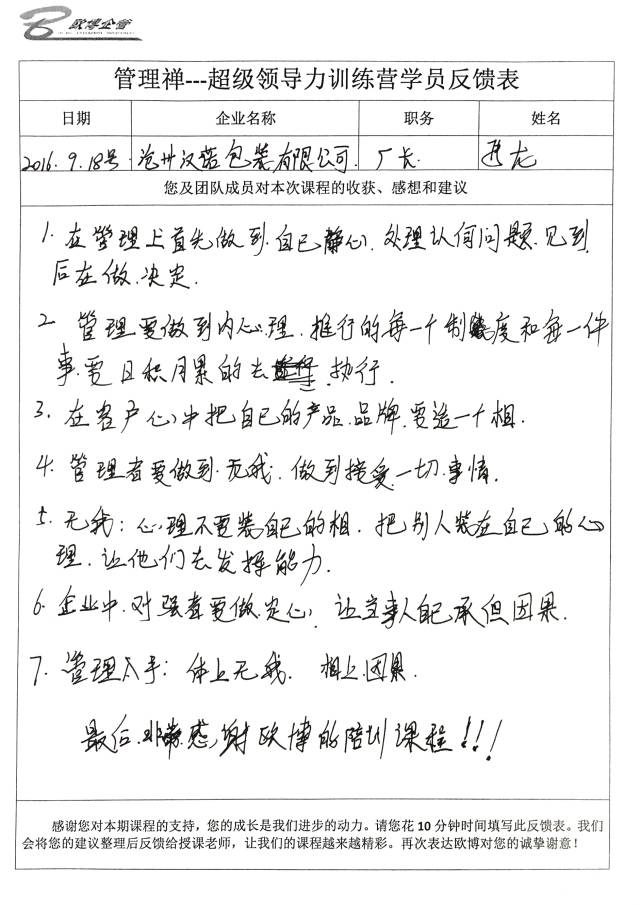 欧博企管
管理禅---超级领导力训练营学员反馈表
日期 企业名称 职务 姓名
2016.9.18号. 沧州汉蓝包装有限公司. 厂长. 龙
您及团队成员对本次课程的收获、感想和建议
1. 在管理上首先做到自己静心、处理认何问题.见到.
后在做.决定.
2. 管理要做到内心理.推行的每一个制度和每一件
事.要日积月累的去 执行.
3. 在客户心中把自己的产品.品牌.要造一个相.
4. 管理者要做到.无我.做到接爱一切.事情.
5. 无我:心理不要装自己的相.把别人装在自己的心
理.让他们去发挥能力.
6. 企业中.对强者要做.定心,让当事人自己承但因果.
7. 管理入手:体上无我. 相上因果.
最后.非常感谢欧博的培训课程!!!
感谢您对本期课程的支持，您的成长是我们进步的动力。请您花 10 分钟时间填写此反馈表。我们
会将您的建议整理后反馈给授课老师，让我们的课程越来越精彩。再次表达欧博对您的诚挚谢意！